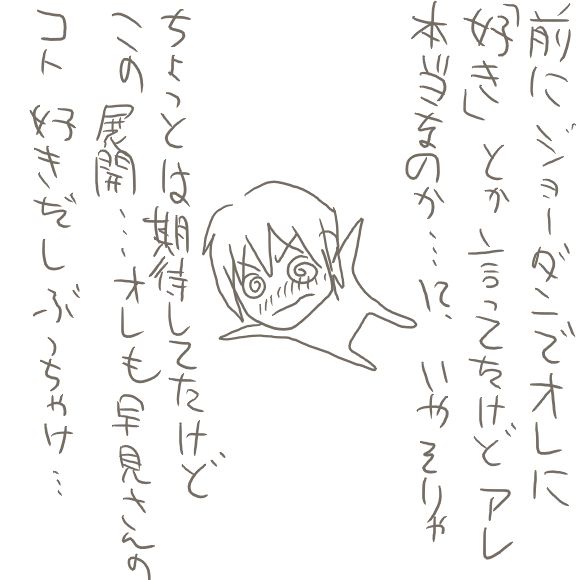 前にジョーダンでオレに
「好き」とか言ってたけどアレ
本当なのか…に、いやそりゃ
ちょっとは期待してたけど
この展開…オレも早見さんの
コト好きだしぶっちゃけ…